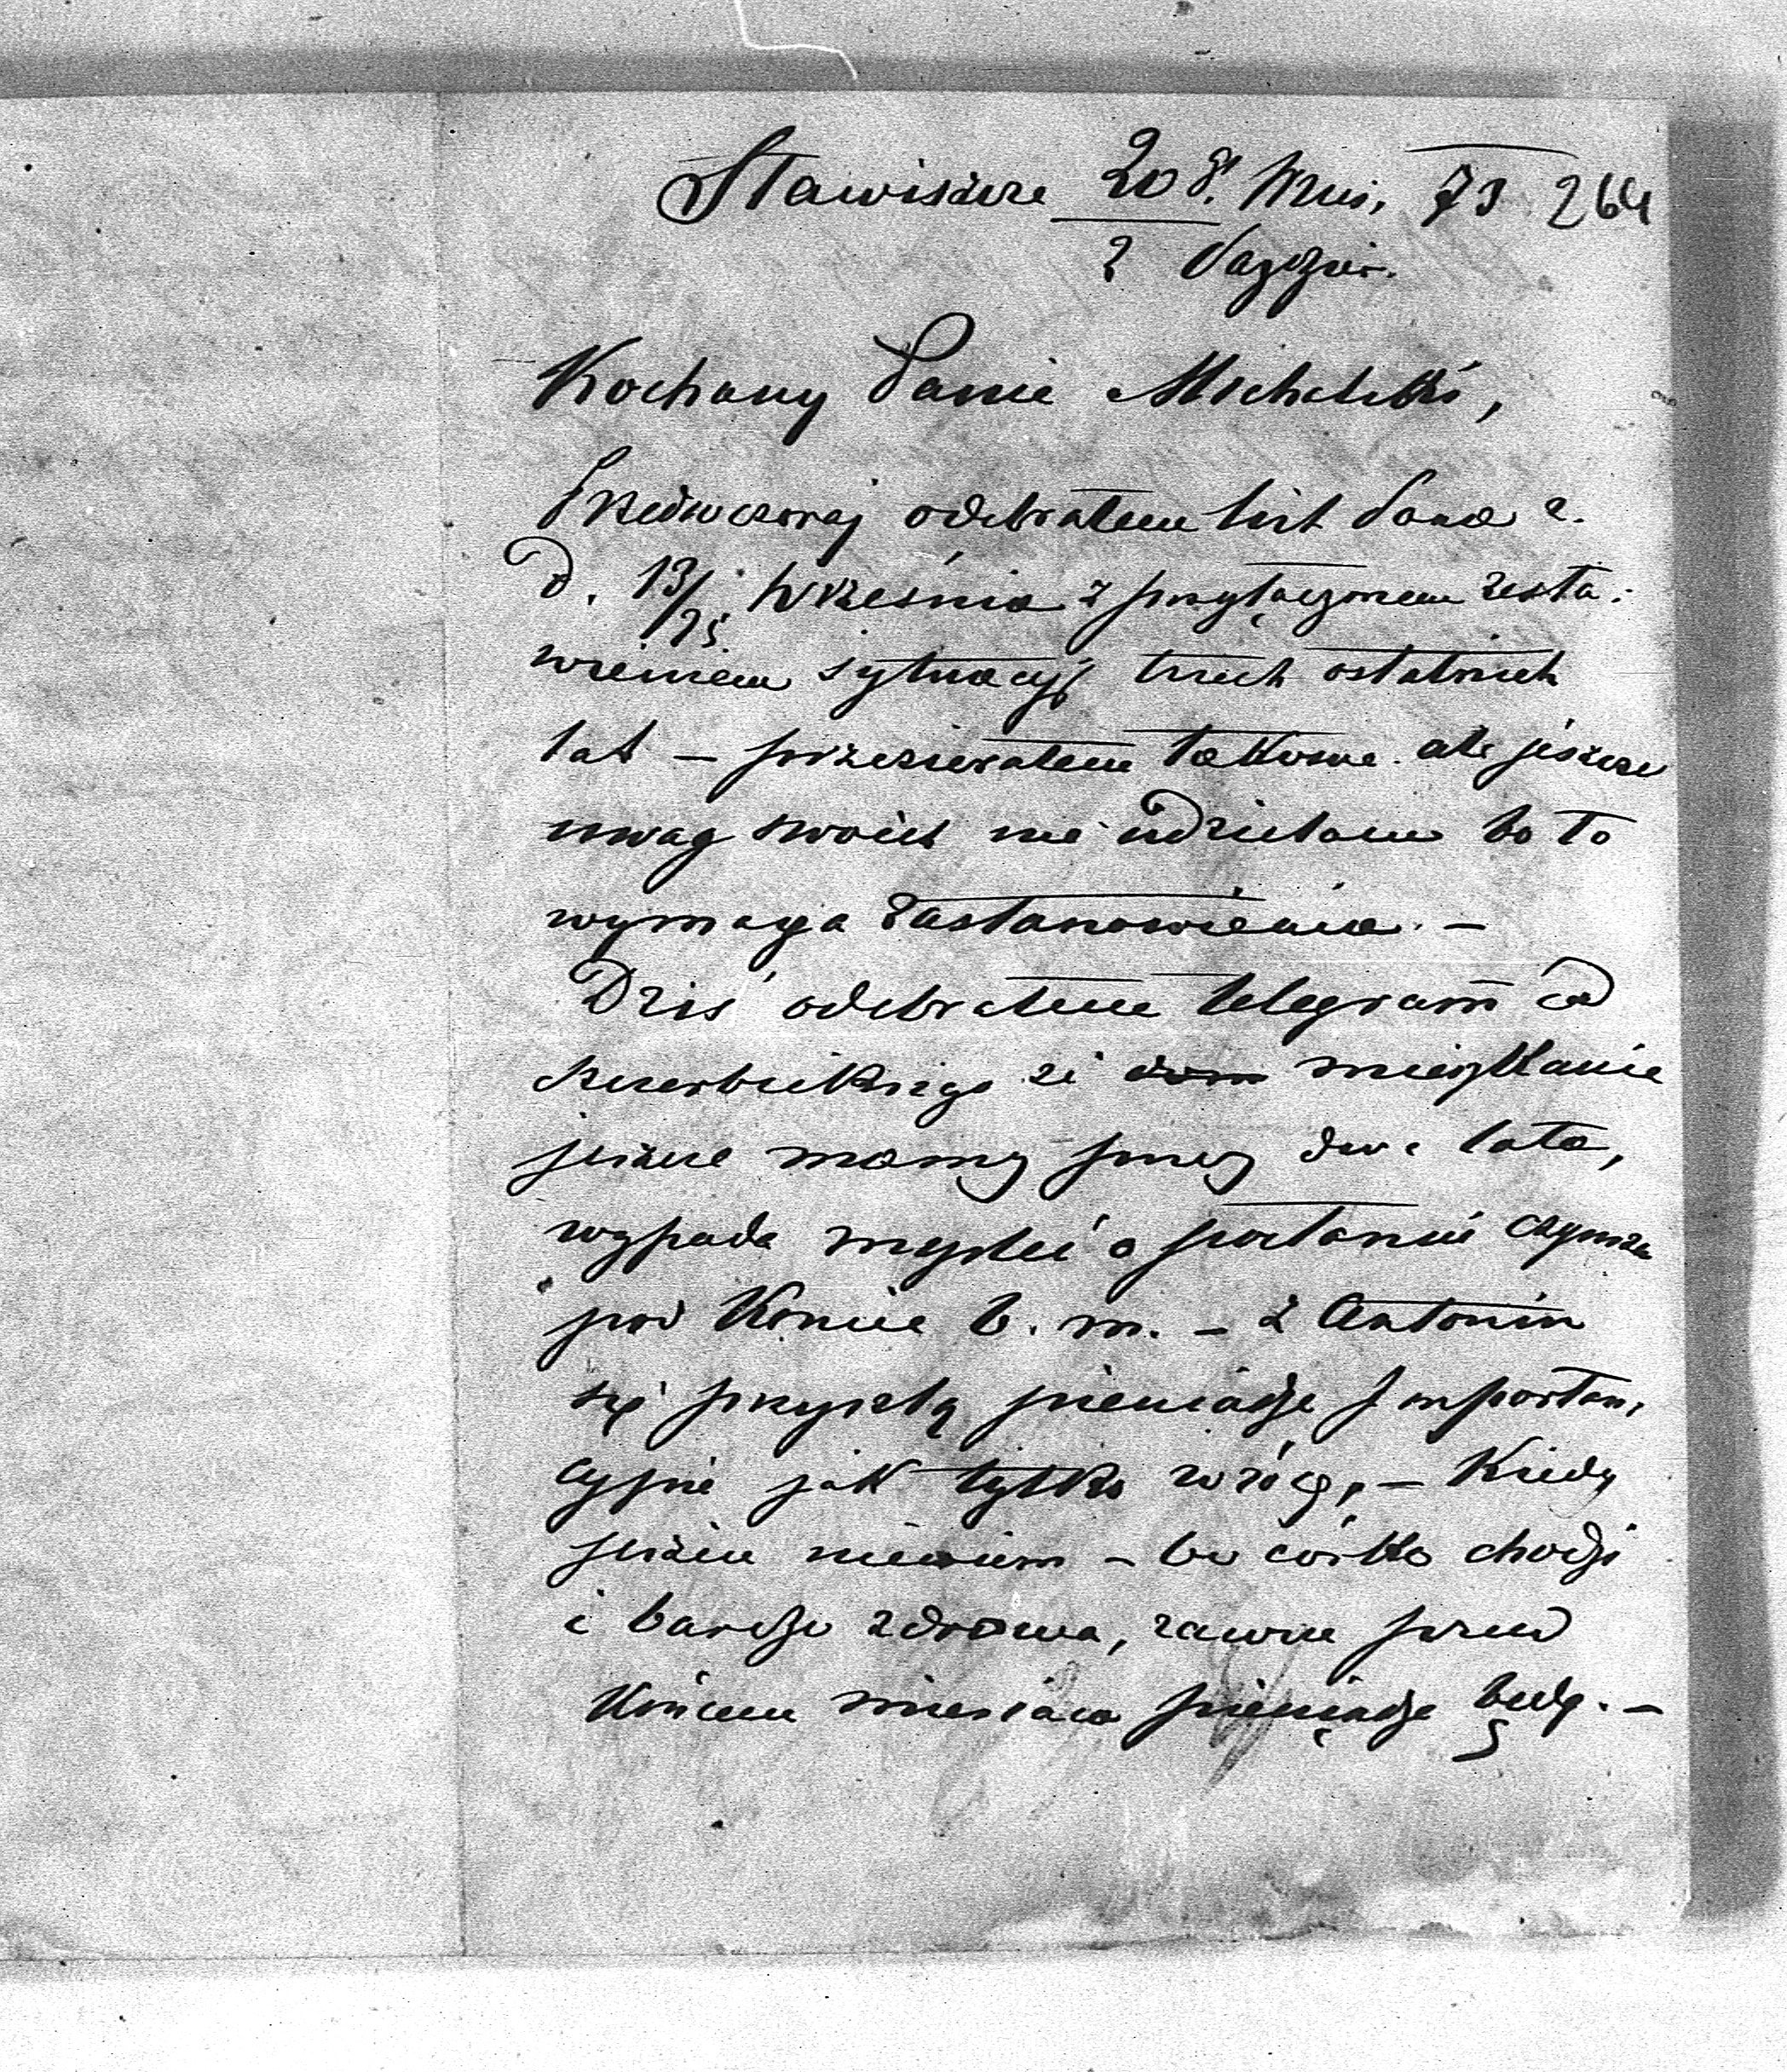 Stawiszcze 20 d. Wrześ. 73 264
2 Paździer.
Kochany Panie Michalski,
Przedwczoraj odebrałem list Pana z
d. 13/25 Września z przyłączonem zesta-
wieniem sytuacyj trzech ostatnich
lat – przezierałem takowe ale jeszcze
uwag swoich nie udzielam bo to
wymaga zastanowienia. –
Dziś odebrałem telegram od
że dom mieszkanie
jeszcze mamy przez dwa lata,
wypada myśleć o posłaniu czynszu
pod koniec b. m. – z Antonin
się przyszlą pieniądze
jak tylko wrócę, – Kiedy
jeszcze niewiem – bo córka chodzi
i bardzo zdrowa, zawsze przed
końcem miesiąca pieniądze będą. –